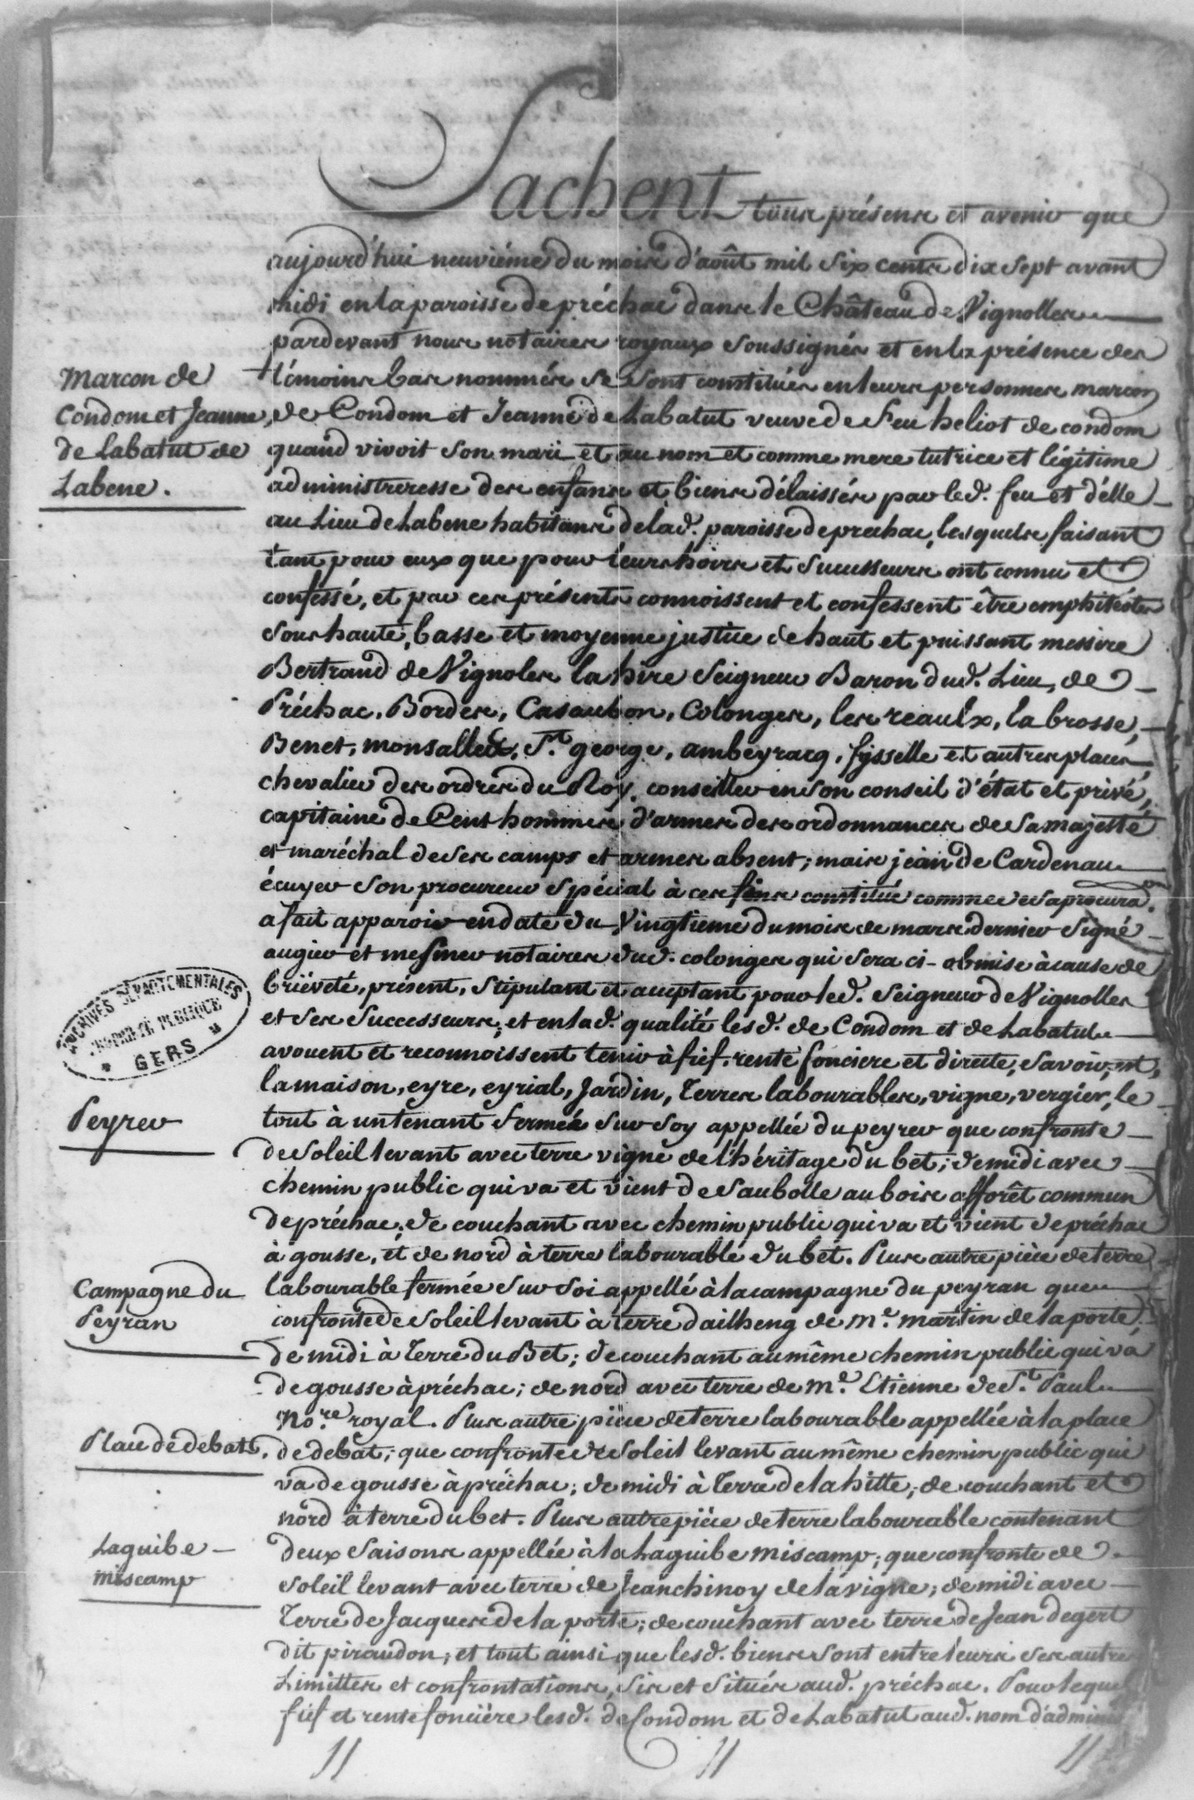 Sachent tous présens et avenir que
aujourd'hui neuviéme du mois d'août mil six cents dix sept avant
midi en la paroisse de préchac dans le Château de Vignolles
pardevant nous notaires royaux soussignés et en la présence des
Marcon de
Condom et Jeanne
de Labatut de
Labene.
témoins bas nommés se sont constitués en leurs personnes marcon
de Condom et Jeanne de Labatut veuve de feu heliot de condom
quand vivoit son mari et au nom et comme mere tutrice et légitime
administreresse des enfans et biens délaissés par led. feu et d'elle
au Lieu de Labene habitans de lad. paroisse de prechac, lesquels faisant
tant pour eux que pour leurs hoirs et successeurs ont connu et
confessé, et par ces présents connoissent et confessent être emphitéotes
sous haute, basse et moyenne justice de haut et puissant messire
Bertrand de Vignoles la hire Seigneur Baron dud. Lieu, de
Préchac, Bordes, Casaubon, Colonges, les reaulx, la brosse,
Benet, monsallet, St. george, ambeyracq, fysselle et autres places,
chevalier des ordres du Roy, conseiller en son conseil d'état et privé,
capitaine de Cent hommes d'armes des ordonnances de sa majesté
et maréchal de ses camps et armes absent; mais jean de Cardenau
écuyer son procureur spécial à ces fins constitué comme de sa procura.
a fait apparoir en date du vingtieme du mois de mars dernier signé
augier et mesmer notaires dud. colonges qui sera ci-obmise à cause de
briéveté, présent, stipulant et acceptant pour led. Seigneur de Vignolles
et ses successeurs, et en lad. qualité lesd. de Condom et de Labatut
avouent et reconnoissent tenir à fief, rente fonciere et directe, savoir, est,
la maison, eyre, eyrial, Jardin, Terres labourables, vigne, vergier, le
Peyrer
tout à un tenant fermée sur soy appellée du peyrer que confronte
de soleil levant avec terre vigne de l'héritage du bet; de midi avec
chemin public qui va et vient de Saubolle au bois et forêt commun
de préchac, de couchant avec chemin public qui va et vient de préchac
à gousse, et de nord à terre labourable du bet. Plus autre piéce de terre
Campagne du
Peyran
labourable fermée sur soi appellé à la campagne du peyran que
confronte de soleil levant à terre d'ailheng de me. martin de la porte,
de midi à Terre du Bet; de couchant au même chemin public qui va
de gousse à préchac; de nord avec terre de me. Etienne de St. Paul
No.re royal. Plus autre piéce de terre labourable appellée à la place
Place de debats.
de debat, que confronte de soleil levant au même chemin public qui
va de gousse à préchac; de midi à Terre de la hitte; de couchant et
nord à terre du bet. Plus autre piéce de terre labourable contenant
Laguibe
miscamp
deux saisons appellée à la Laguibe miscamp; que confronte de
soleil levant avec terre de Jeanchinoy de lavigne; de midi avec
Terre de Jacques de la porte; de couchant avec terre de Jean degert
dit piraudon; et tout ainsi que lesd. biens sont entre leurs ses autres
Limittes et confrontations, sis et situés aud. préchac. Pour lequel
fief et rente fonciére lesd. de Condom et de Labatut aud. nom
ARCHIVES DÉPARTEMENTALES
GERS